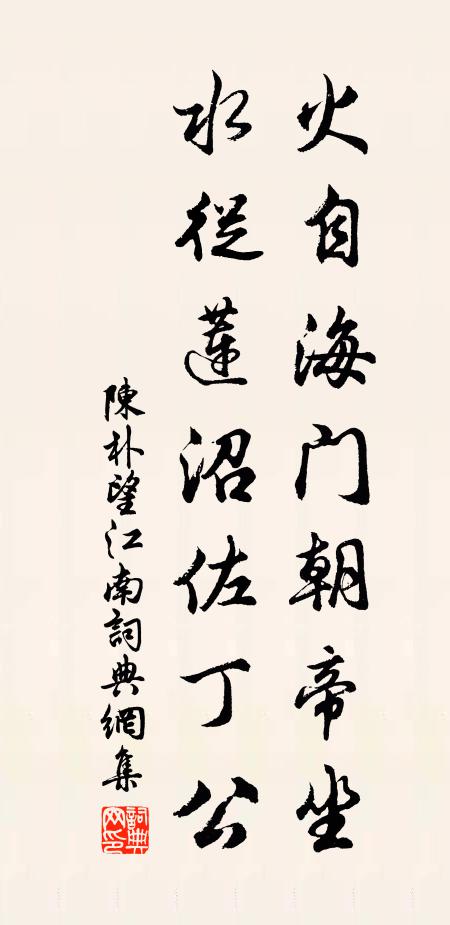 火自海门朝帝坐
水從蓮沼佐丁公
陳朴望江南詞典網集
詞典网印